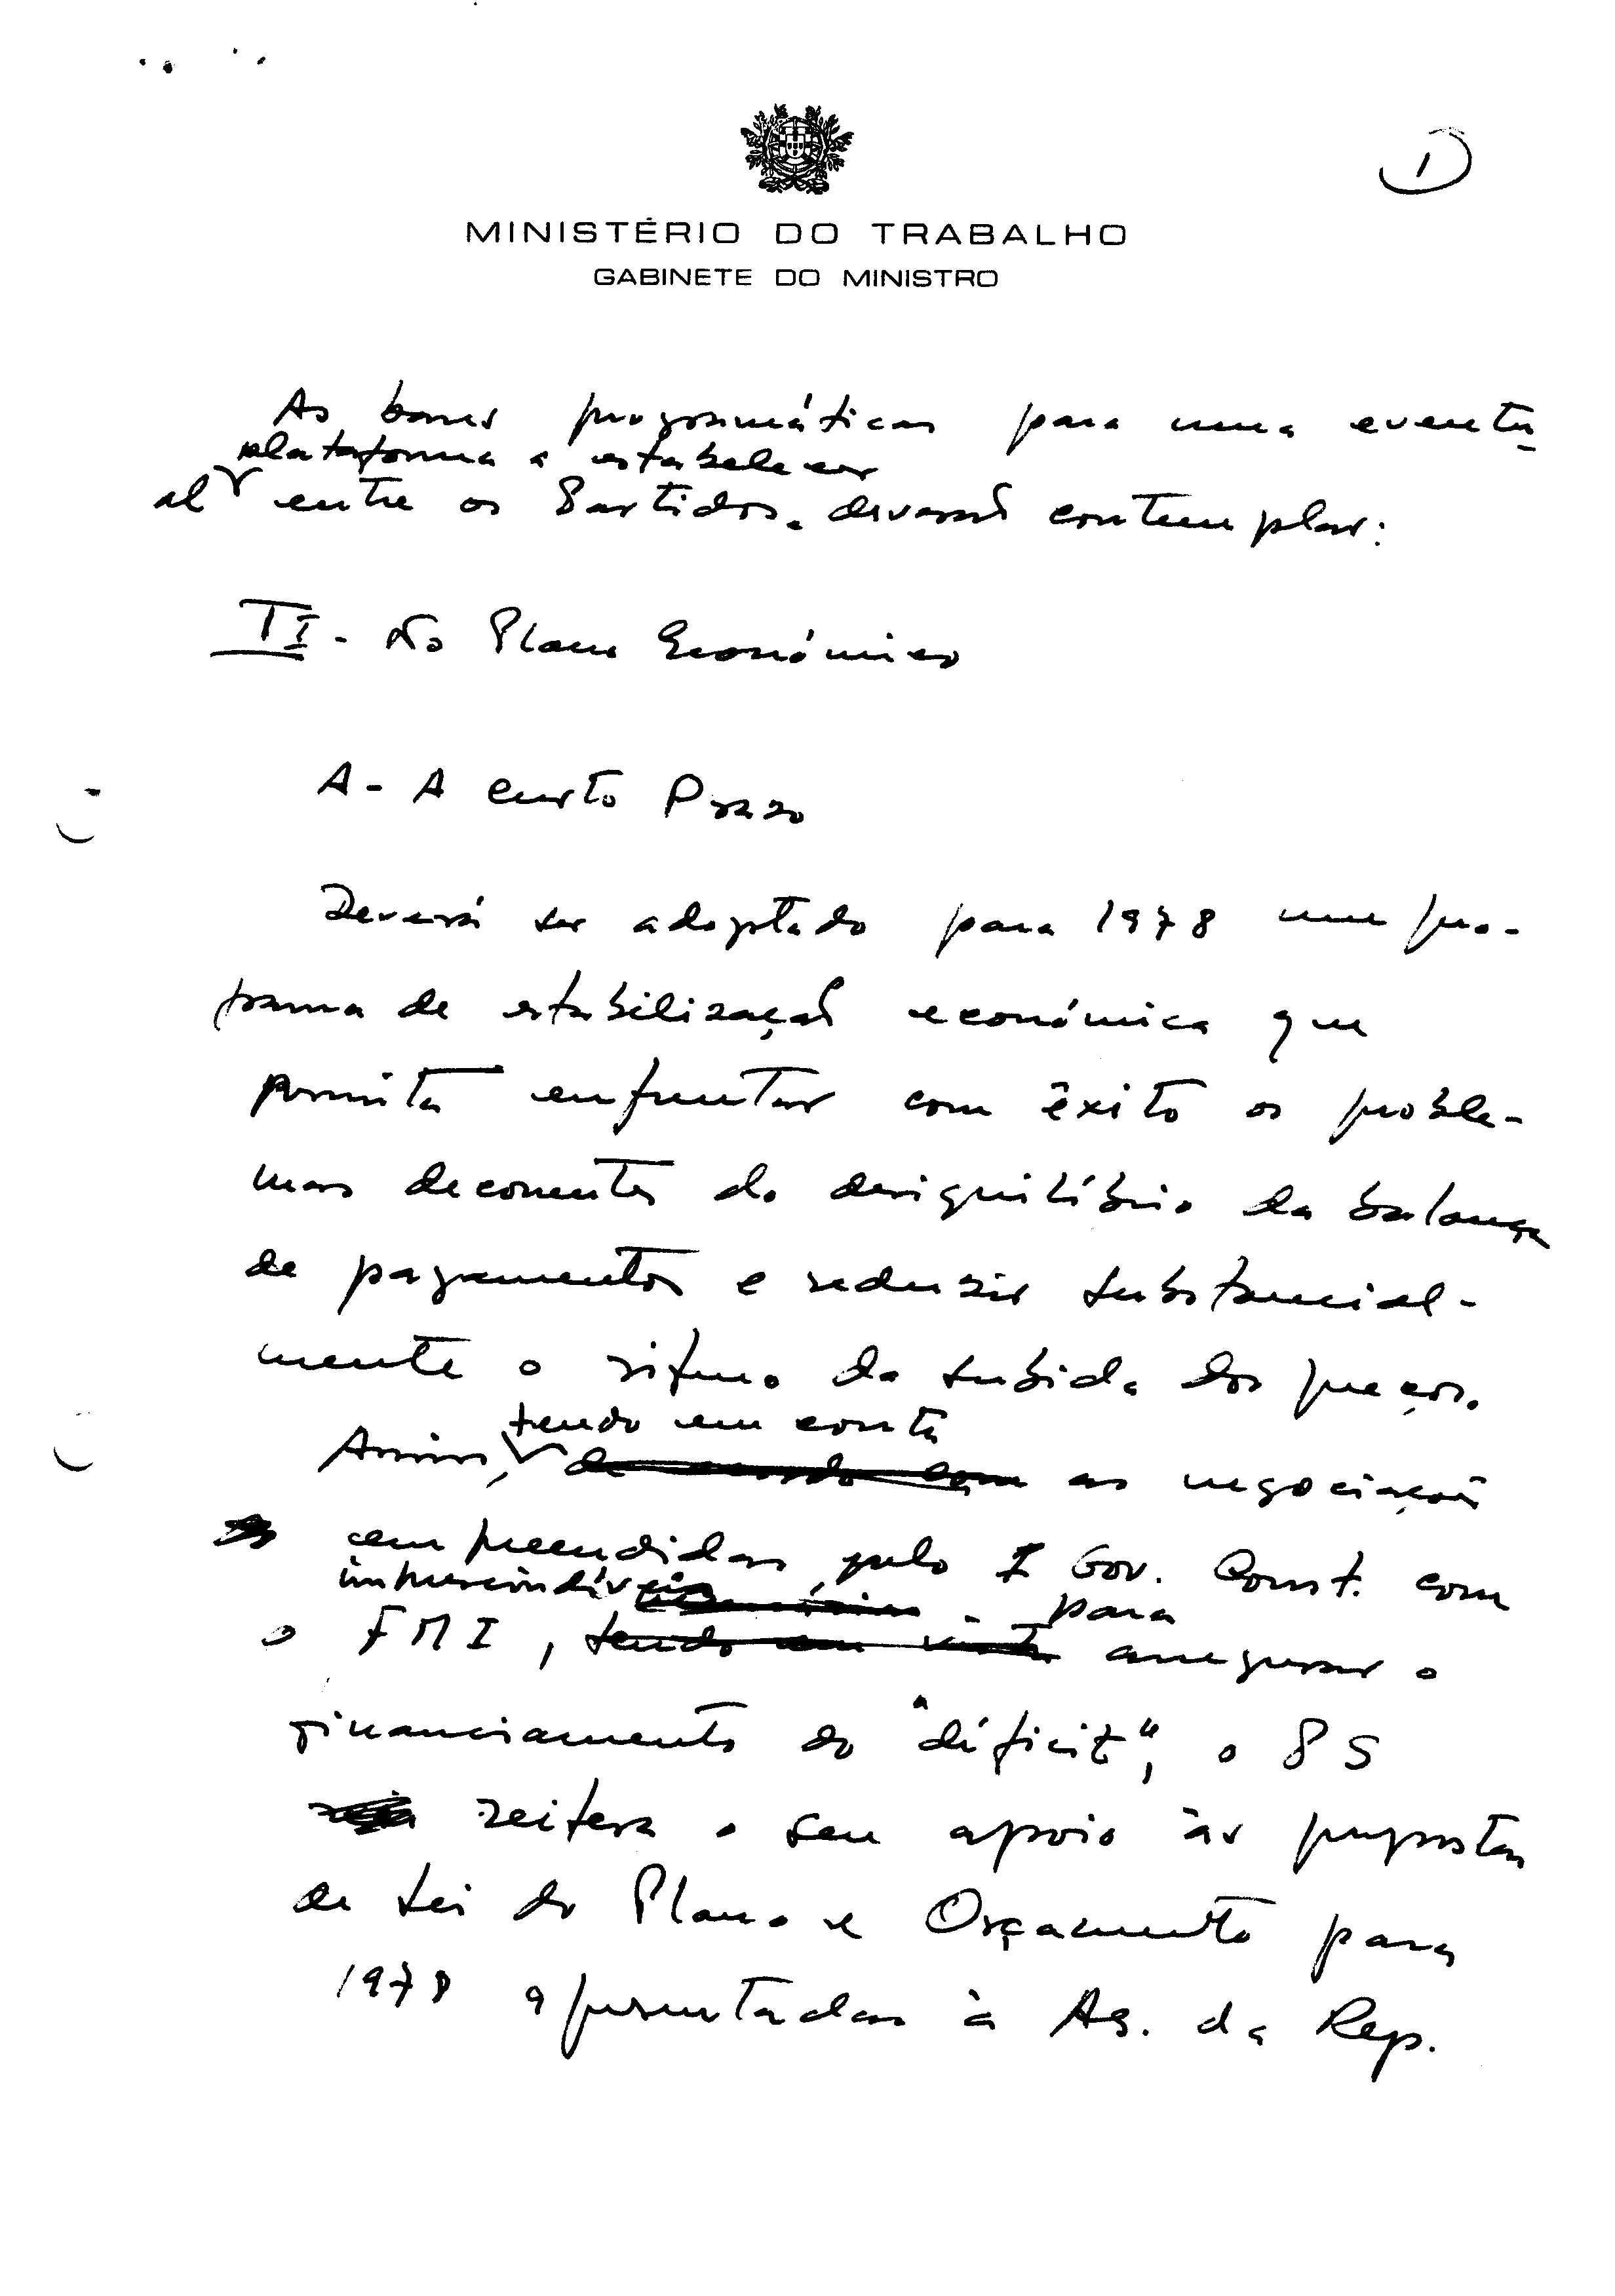 1
MINISTÉRIO DO TRABALHO
GABINETE DO MINISTRO
As bases programáticas para uma eventu-
plataforma a estabelecer
al entre os Partidos, deverão contemplar:
II - No Plano Económico
A - A Curto Prazo
Deverá ser adoptado para 1978 um pro-
grama de estabilização económica que
permita enfrentar com êxito os proble-
mas decorrentes do desiquilíbrio da balança
de pagamentos e reduzir substancial-
mente o ritmo da subida dos preços.
tendo em conta
Assim, de acordo com as negociações
empreendidas pelo I Gov. Const. com
imprescindíveis para
o FMI, tendo em vista assegurar o
financiamento do "déficit", o PS
reitera o seu apoio às propostas
de Lei do Plano e Orçamento para
1978 apresentadas à As. da Rep.